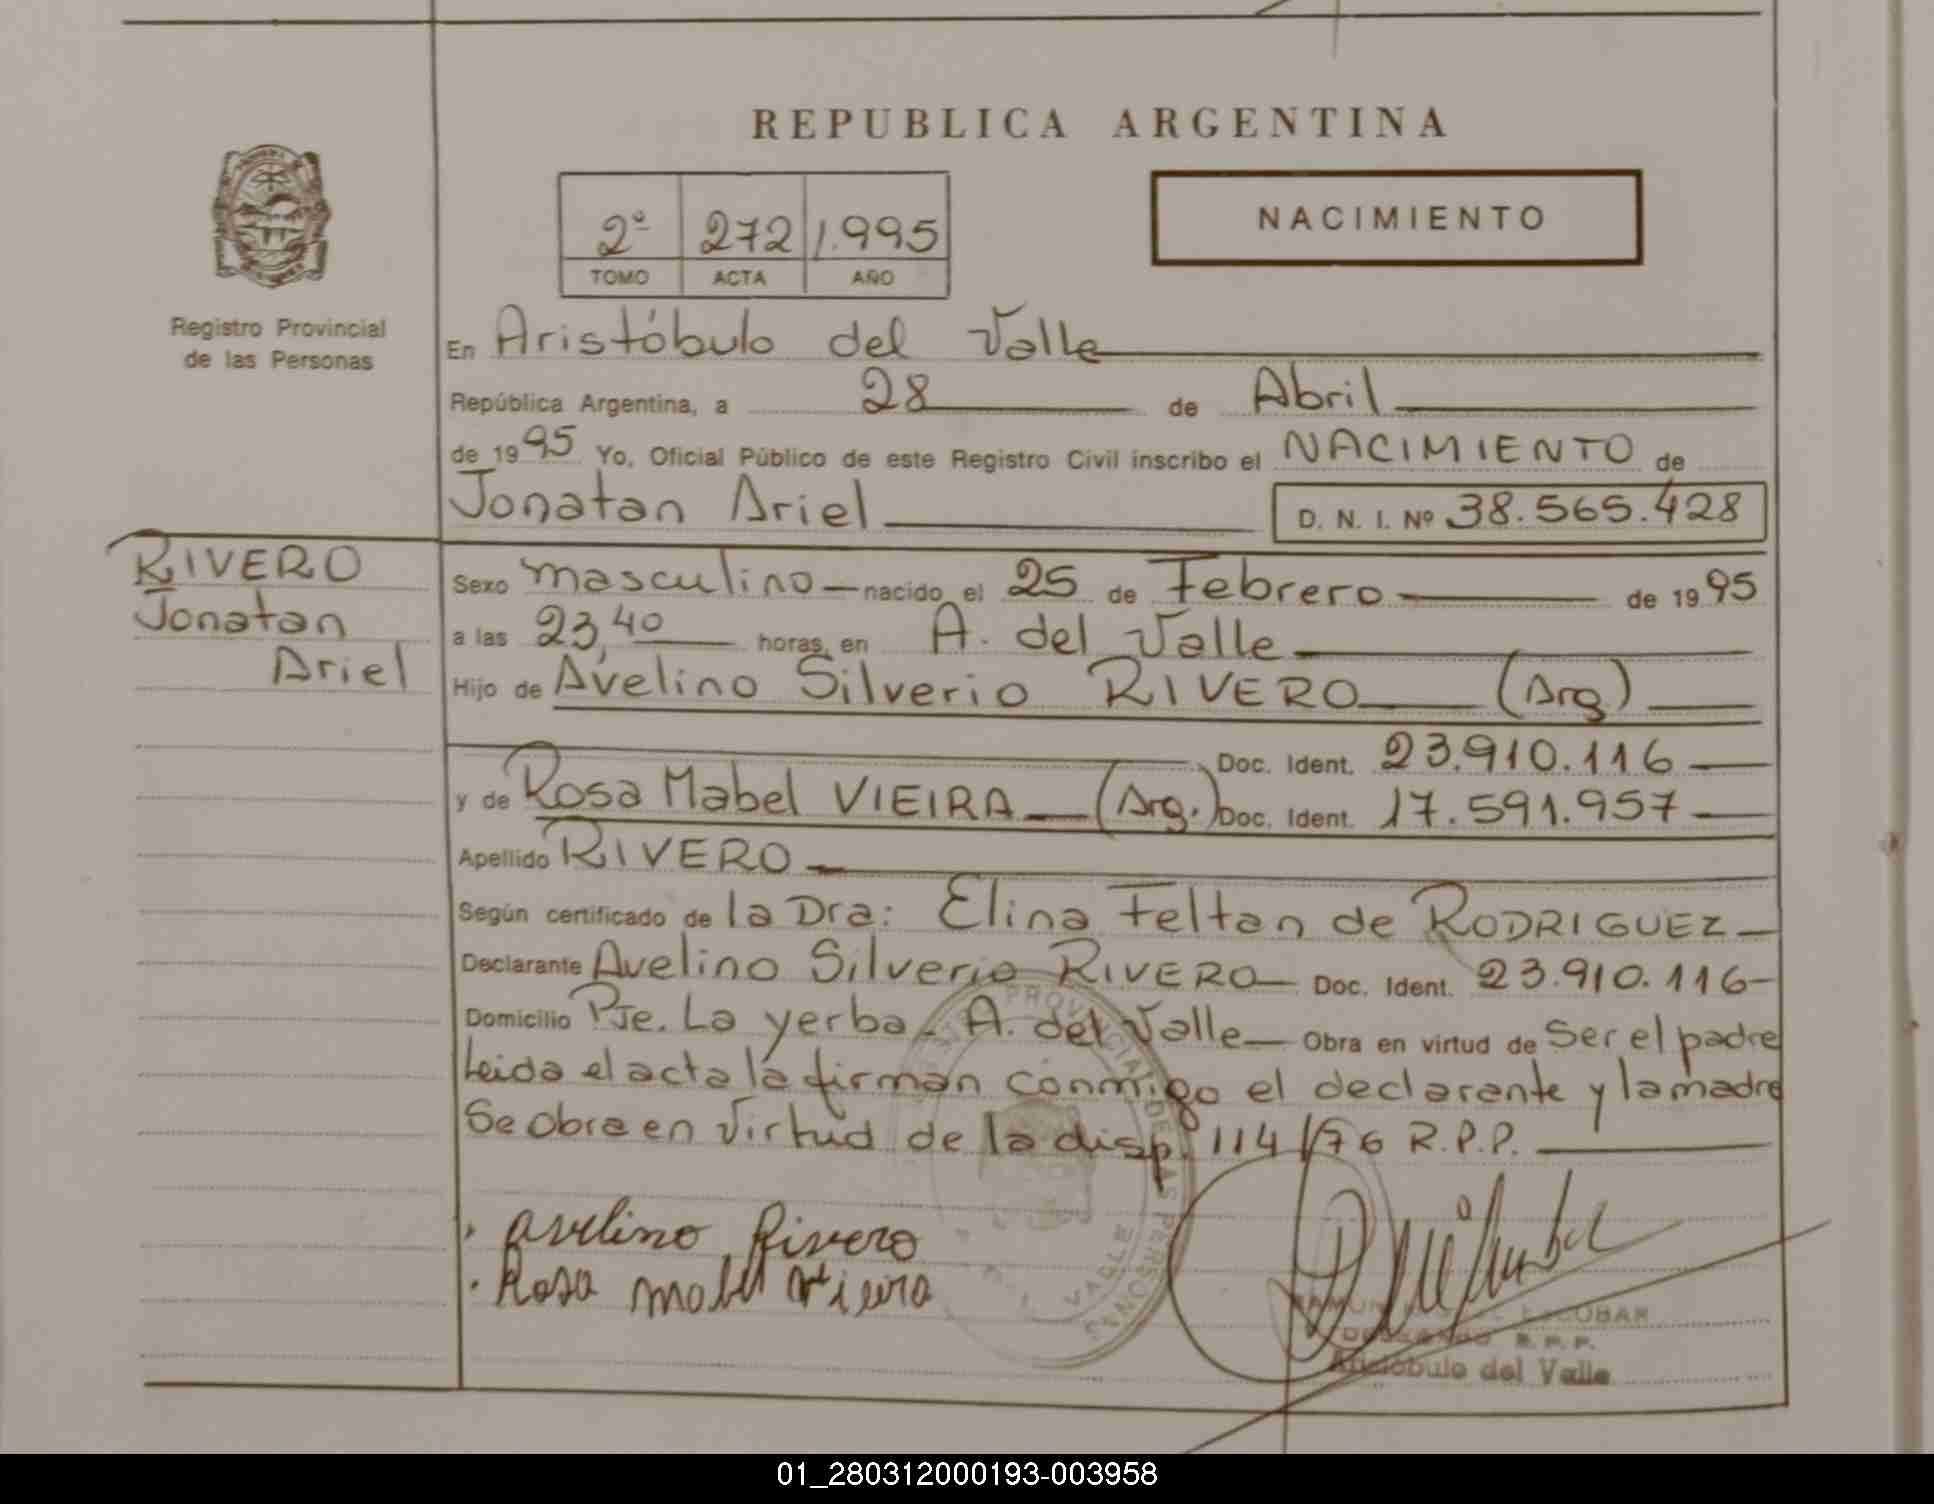 REPUBLICA ARGENTINA
2º 272 1.995
TOMO ACTA AÑO
NACIMIENTO
Registro Provincial
de las Personas
En Aristóbulo del Valle
República Argentina, a 28 de Abril
de 1995 Yo, Oficial Público de este Registro Civil inscribo el NACIMIENTO de
Jonatan Ariel D. N. I. Nº 38.565.428
RIVERO
Jonatan
Ariel
Sexo masculino nacido el 25 de Febrero de 1995
a las 23,40 horas, en A. del Valle
Hijo de Avelino Silverio RIVERO (Arg)
Doc. Ident. 23.910.116
y de Rosa Mabel VIEIRA (Arg.) Doc. Ident. 17.591.957
Apellido RIVERO
Según certificado de la Dra: Elina Feltan de RODRIGUEZ
Declarante Avelino Silverio RIVERO Doc. Ident. 23.910.116
Domicilio Pje. La yerba - A. del Valle Obra en virtud de Ser el padre
Leida el acta la firman conmigo el declarante y la madre
Se obra en virtud de la disp. 114/76 R.P.P.
avelino Rivero
Rosa mabel Vieira
PROVINCIAL DE LAS PERSONAS
VALLE
ESCOBAR
R. P. P.
Aristóbulo del Valle
01_280312000193-003958